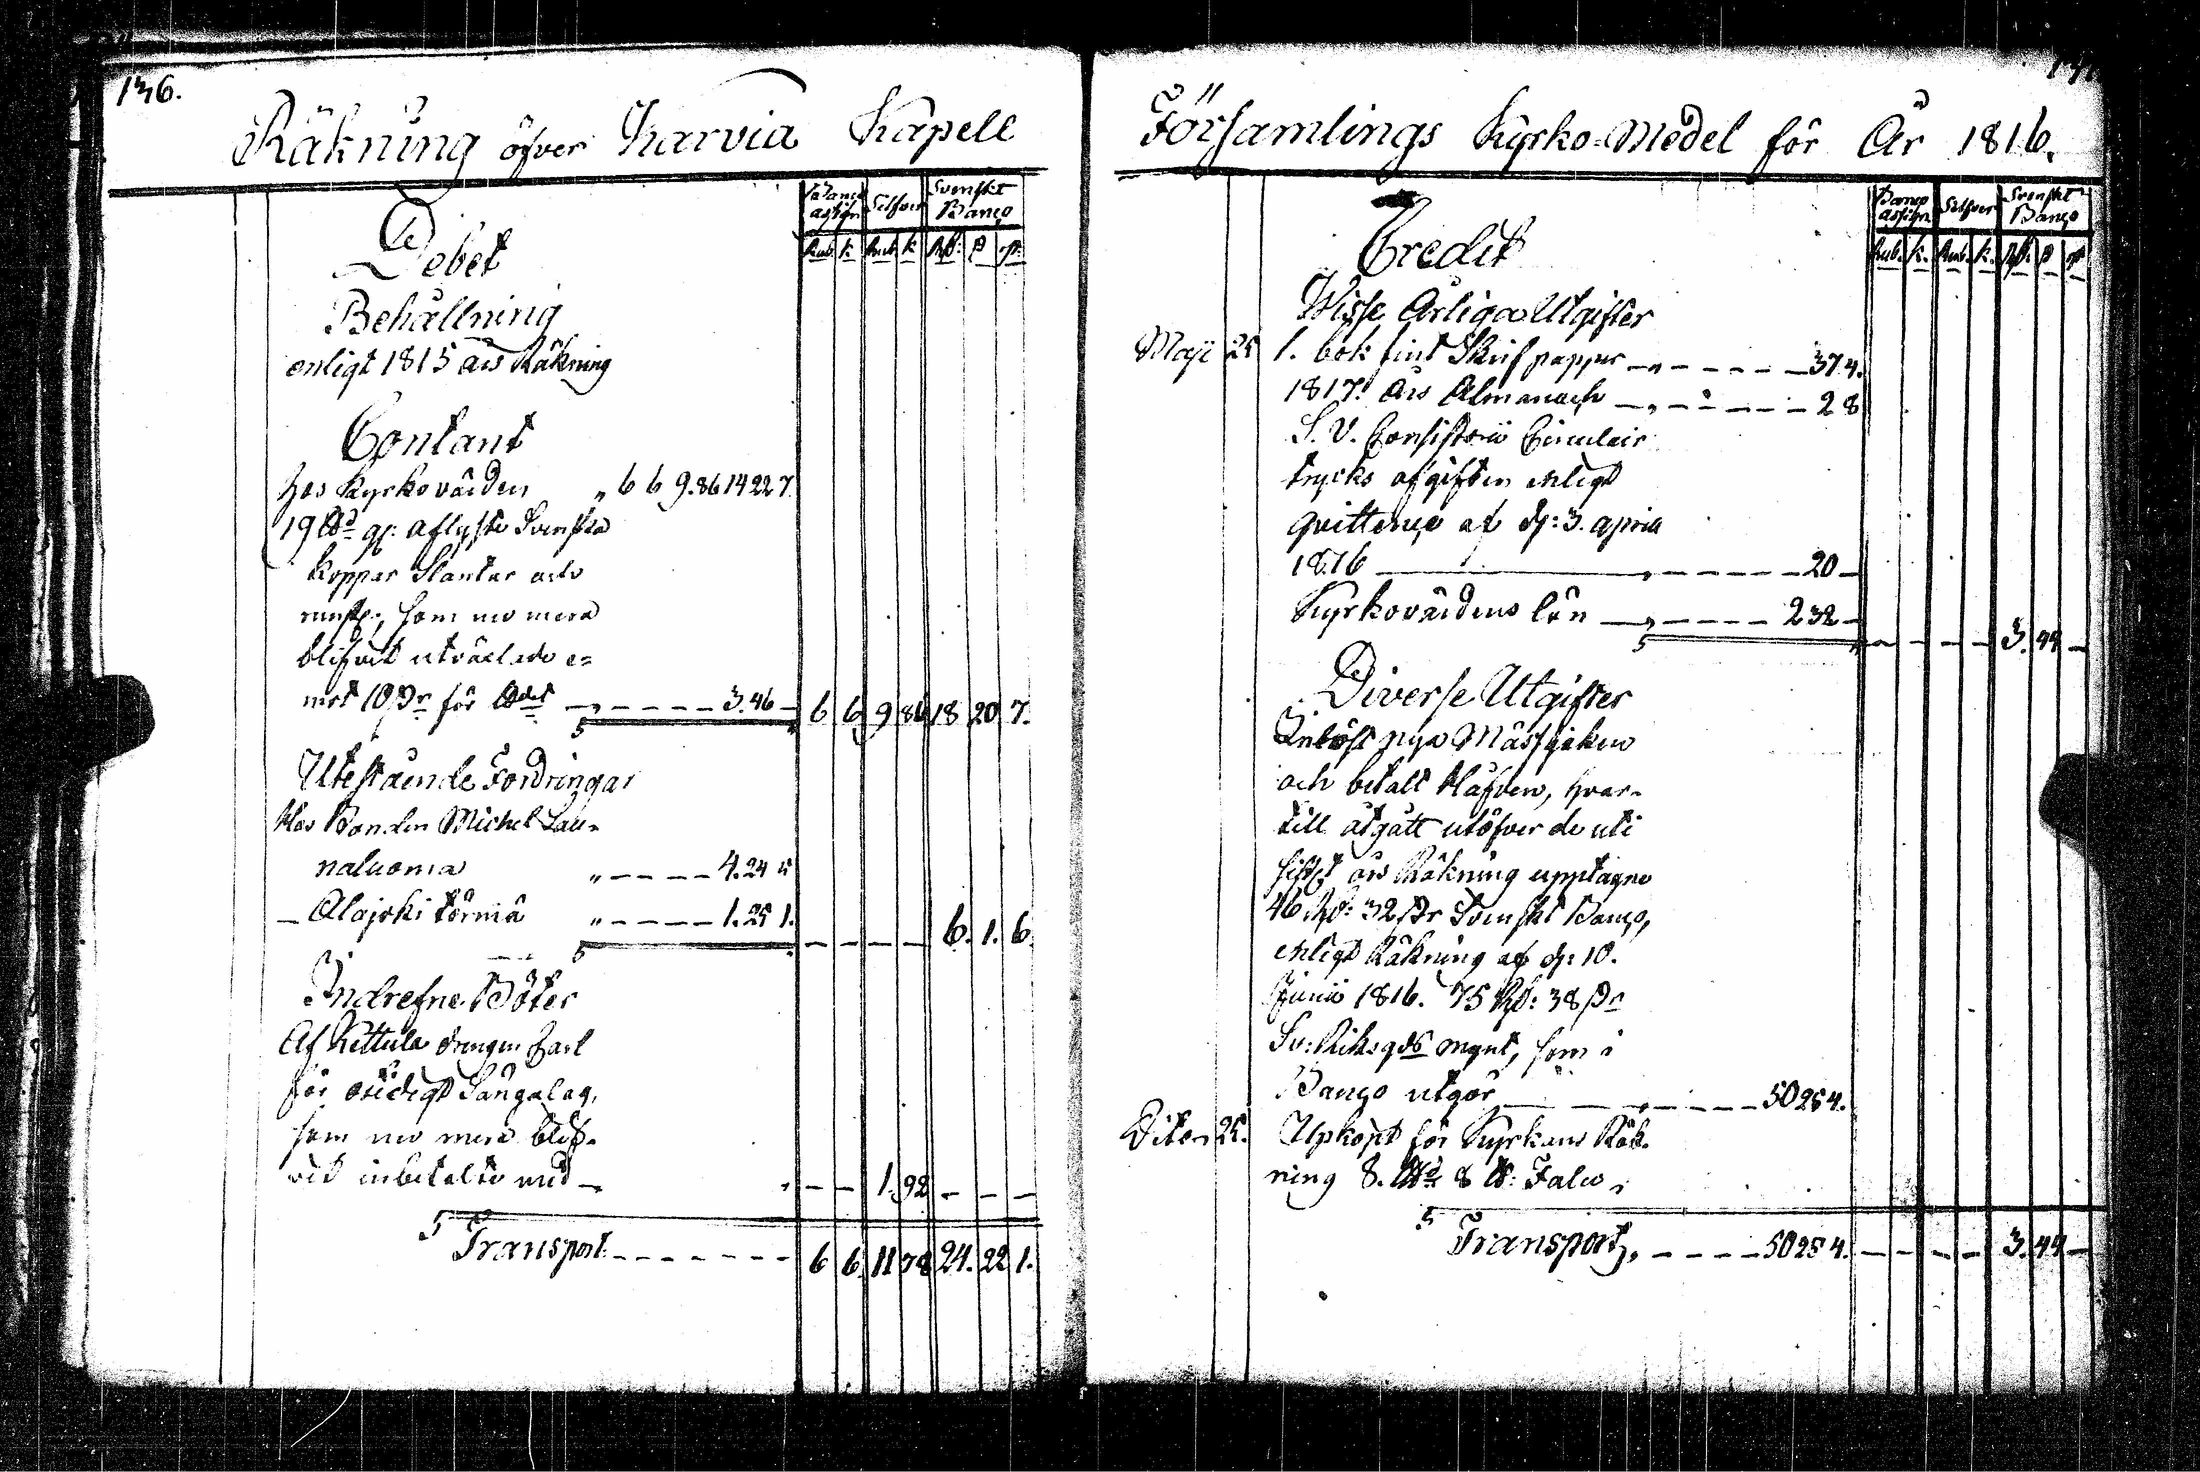 136.
Räkning öfver Karvia Kapell
Banco assign. Silfver Svenskt Banco
Rub. k. Rub. k. Rd: ß rst.
Debet
Behållning
enligt 1815 års Räkning
Contant
hos Kyrkovärden „ 6 6 9.86 14 22 7
19 gl: aflyste Svenska
koppar Slantar och
som nu mera
blifvit utväxlade e=
mot 10 ßr för 3.46 —
5 6 6 9 86 18 20 7.
Utestående Fordringar
Hos Bonden Michel Lau-
naluoma „ — — — — 4.24 5
— Alajoki Törmä „ — — — — 1.25 1.
5 — — — — 6. 1. 6
Indrefne Böter
Af Kettula drengen Carl
för osedigt Sängalag,
som nu mera blif-
vit inbetalte med — „ — — 1. 92 — — —
5
Transport — — — — — — 6 6 11 78 24. 22 1.
Församlings Kyrko-Medel för År 1816.
Banco assign. Silfver Svenskt Banco
Rub. k. Rub. k. Rd: ß rst
Credit
Wisse Årliga Utgifter
Maji 25 1. bok fint Skrifpapper — „ — — — — — 37 4.
1817. års Almanach — „ — — — — 2 8
S. V. Consistorii Circulair
trycks afgiften enligt
qvittence af d: 3. april
1816 — „ — — — — — 20 —
Kyrkovärdens lön — „ — — — — 2 32 —
5 — — — — 3. 44 —
Diverse Utgifter
Inlöst nya Mässhaken
och betalt Håfven, hvar-
till åtgått utöfver de uti
sistl. års Räkning upptagne
46 Rd: 32 ßr Svenskt Banco,
enligt Räkning af d: 10.
Junii 1816. 75 Rd: 38 ßr
Sv: Riksgds mynt, som i
Banco utgör — „ — — — — 50 25 4.
Dito 25. Upköpt för Kyrkans Räk-
ning 8. 8 : Falu
5
Transport, — — — — 50 25 4. — — — — 3. 44 —